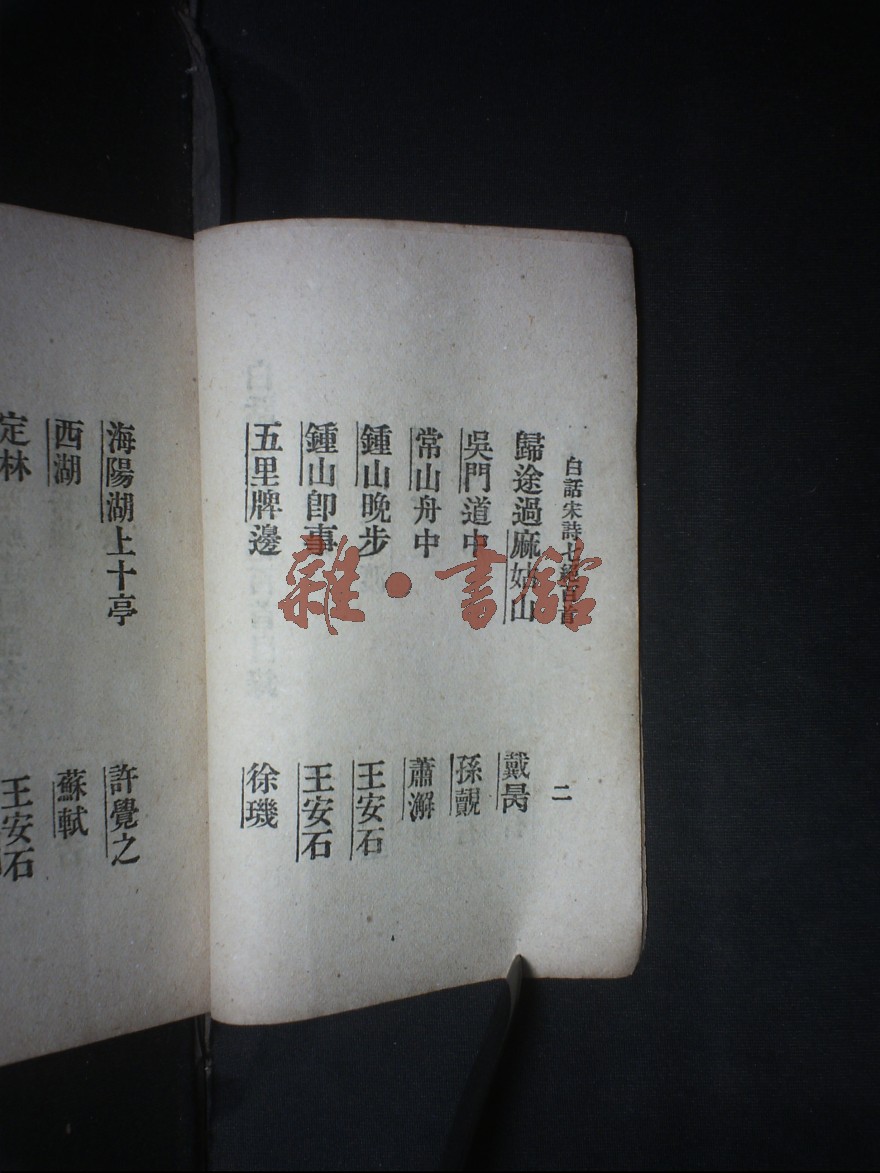 白話宋詩七絕百首 二
歸途過麻姑山 戴昺
吳門道中 孫覿
常山舟中 蕭澥
鍾山晚步 王安石
鍾山卽事 王安石
五里牌邊 徐璣
海陽湖上十亭 許覺之
西湖 蘇軾
定林 王安石
雜·書館